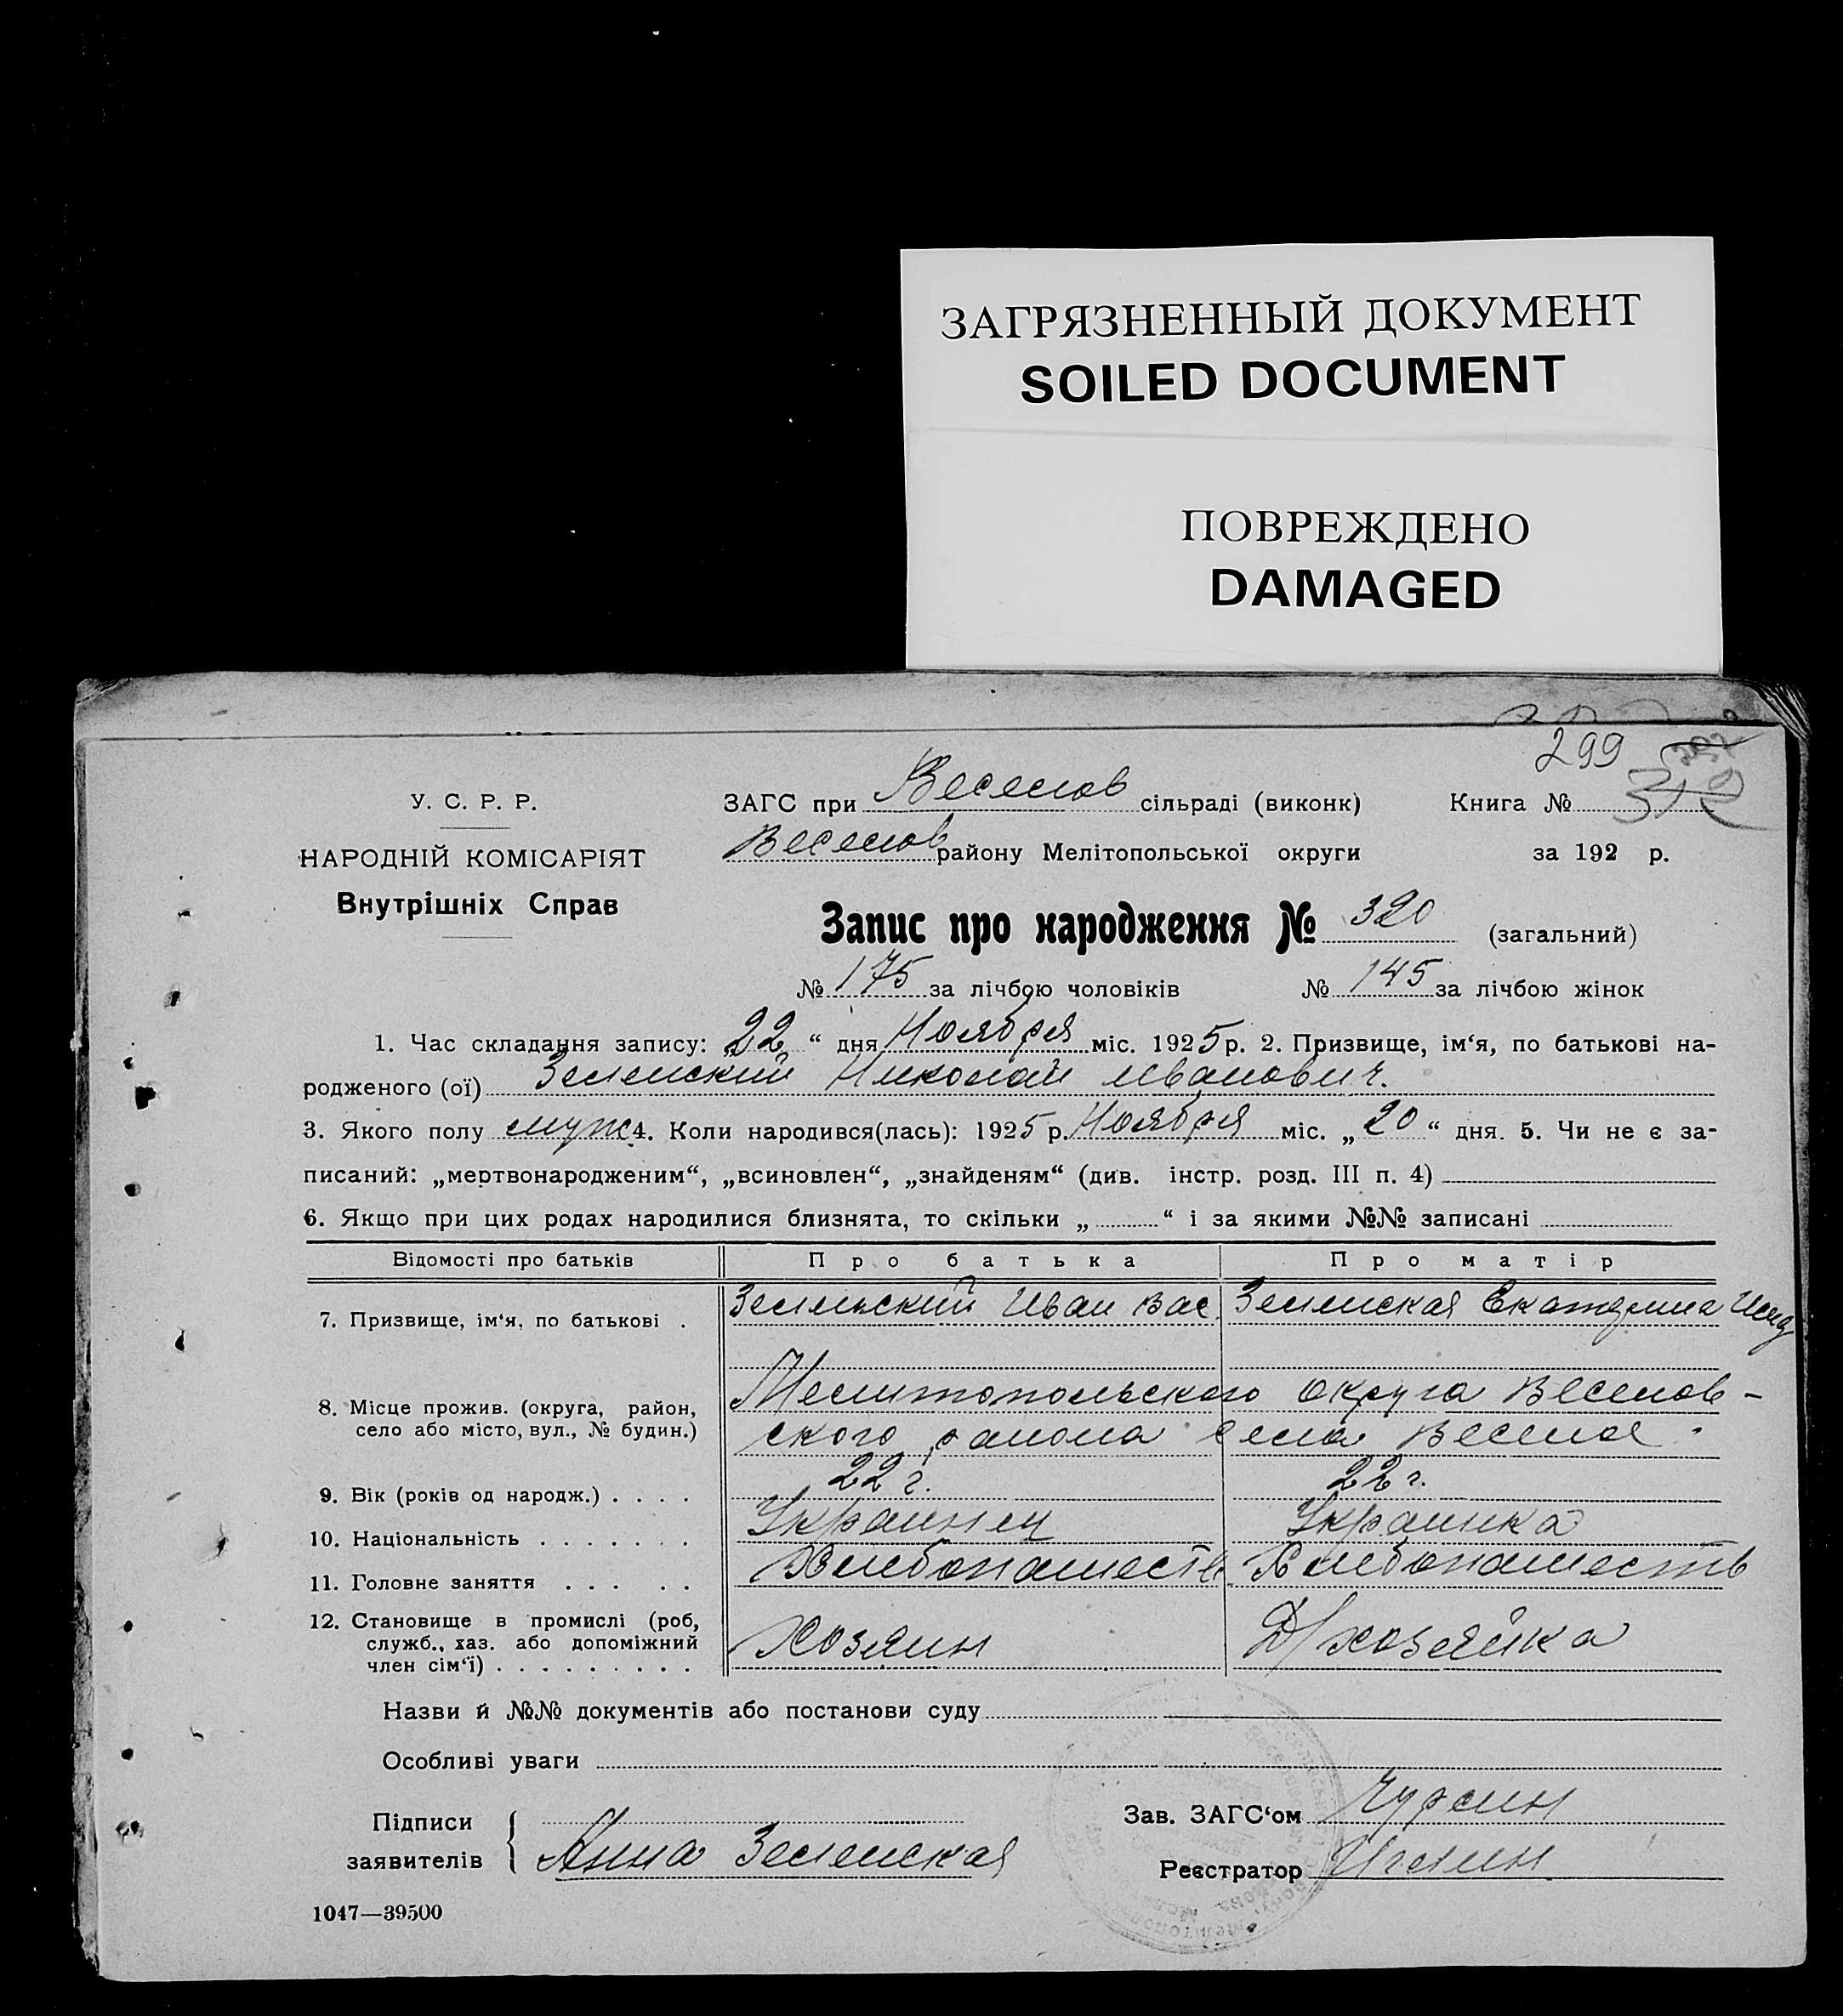 ЗАГРЯЗНЕННЫЙ ДОКУМЕНТ
SOILED DOCUMENT
ПОВРЕЖДЕНО
DAMAGED
299
У. С. Р. Р.
НАРОДНІЙ КОМІСАРІЯТ
Внутрішніх Справ
ЗАГС при Веселов сільраді (виконк) Книга №
Веселов району Мелітопольської округи за 192 р.
Запис про народження № 320 (загальний)
№ 175 за лічбою чоловіків № 145 за лічбою жінок
1. Час складання запису: „22“ дня Ноября міс. 1925 р. 2. Призвище, ім‘я, по батькові на-
родженого (ої) Зеленский Николай Иванович.
3. Якого полу муж 4. Коли народився(лась): 1925 р. Ноября міс. „20“ дня. 5. Чи не є за-
писаний: „мертвонародженим“, „всиновлен“, „знайденям“ (див. інстр. розд. III п. 4)
6. Якщо при цих родах народилися близнята, то скільки „ “ і за якими №№ записані
Відомості про батьків Про батька Про матір
7. Призвище, ім‘я, по батькові . Зеленский Иван Вас. Зеленская Екатерина
8. Місце прожив. (округа, район, Мелитопольского округа Веселов-
село або місто, вул., № будин.) ского района села Веселое.
9. Вік (років од народж.) . . . . 22 г. 22 г.
10. Національність . . . . . . . Украинец Украинка
11. Головне заняття . . . . . Хлебопашеств Хлебопашеств
12. Становище в промислі (роб,
служб., хаз. або допоміжний Хозяин Д/хозяйка
член сім‘ї) . . . . . . . . .
Назви й №№ документів або постанови суду
Особливі уваги
Підписи
заявителів Анна Зеленская
Зав. ЗАГС‘ом Чурсин
Реєстратор
1047—39500